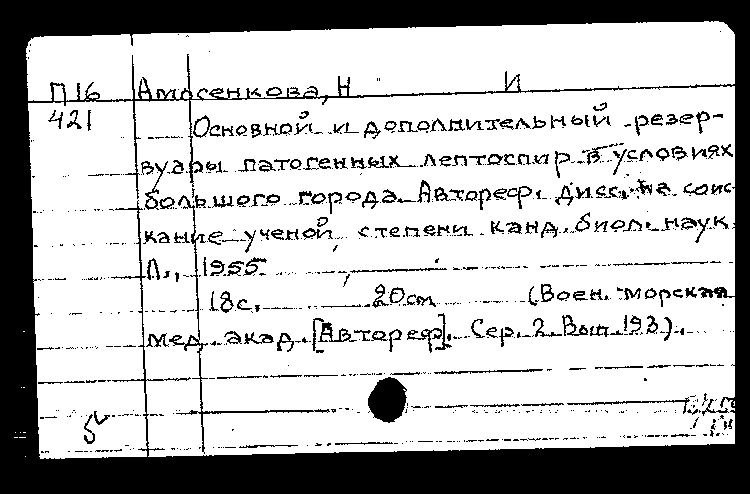 П16 Амосенкова, Н И
421 Основной и дополнительный резер-
вуары патогенных лептоспир в условиях
большого города. Автореф. дисс. на соис
кание ученой степени канд. биол. наук
Л., 1955.
18с. 20см (Воен. морская
мед. акад. [Автореф]. Сер. 2. Вып. 193).
5